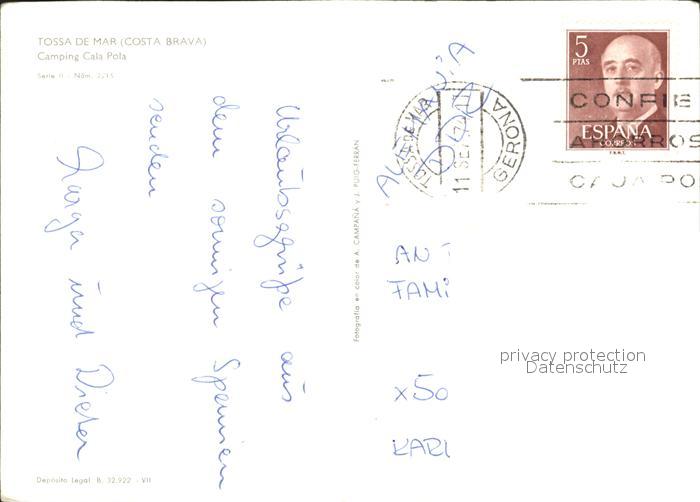 TOSSA DE MAR (COSTA BRAVA)
Camping Cala Pola
Serie II - Núm. 2215
Urlaubsgrüße aus
dem sonnigen Spanien
senden
Marga und Dieter
Depósito Legal B. 32.922 - VII
Fotografía en color de A. CAMPAÑÁ y J. PUIG-FERRÁN
5
PTAS
ESPAÑA
CORREOS
TOSSA DE MAR
11 SE
GERONA
CONFIE
AHORROS
CAJA PO
ALEMANIA
AN
FAMI
x50
KARL
privacy protection
Datenschutz